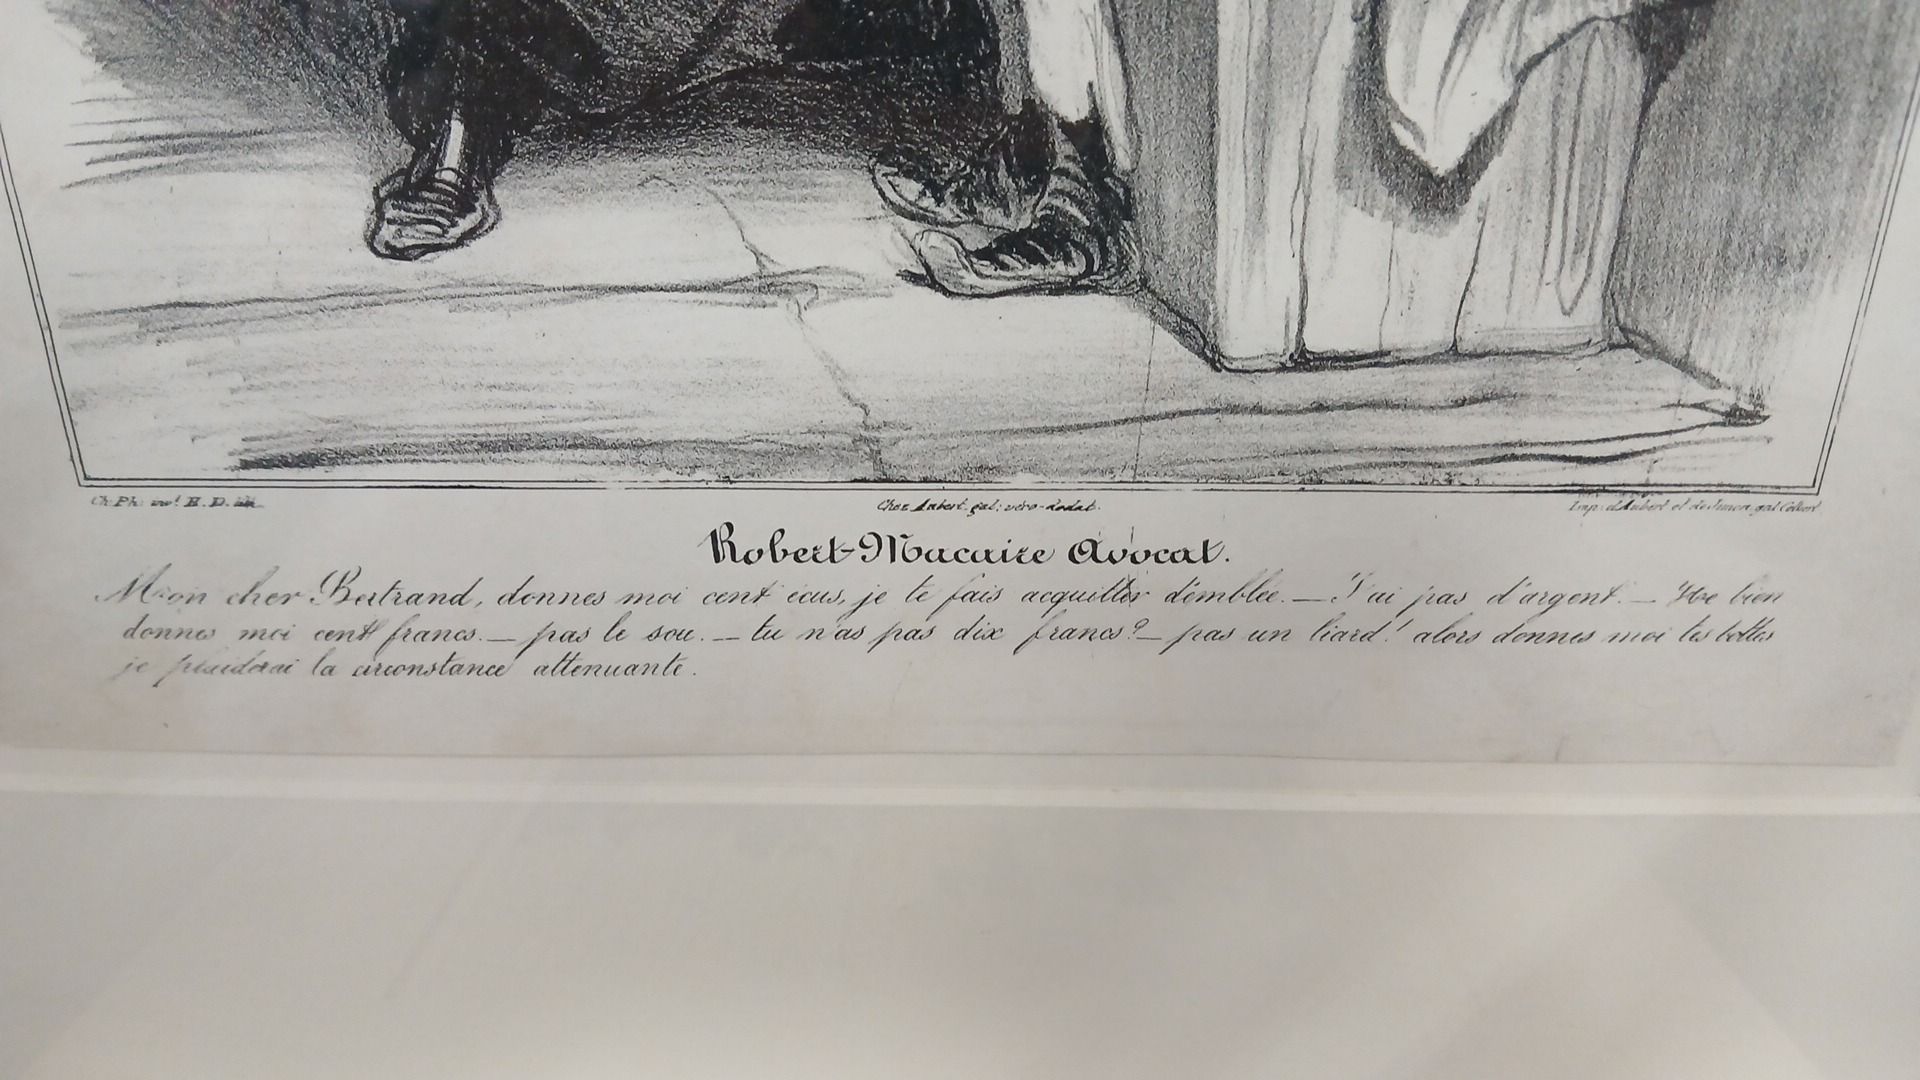 Ch. Ph. inv.t H. D. lith.
Chez Aubert gal: véro-dodat.
Imp: d'Aubert et de Junca, gal Colbert
Robert-Macaire Avocat.
Mon cher Bertrand, donnes moi cent écus, je te fais acquitter d'emblée. — J'ai pas d'argent. — He bien
donnes moi cent francs. — pas le sou. — tu n'as pas dix francs? — pas un liard! alors donnes moi tes bottes
je plaiderai la circonstance attenuante.